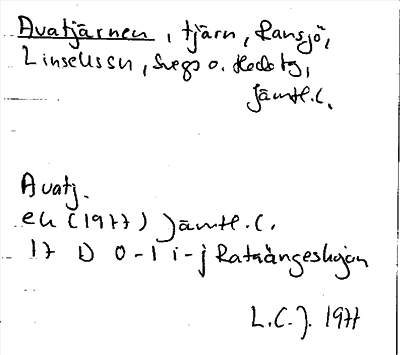 Avatjärnen, tjärn, Ransjö,
Linsellssn, Svegs o. Heds tg,
Jämtl.l.
Avatj.
ek (1977) Jämtl.l.
17 D 0-1 i-j Rataängeskojan
L.C.J. 1977